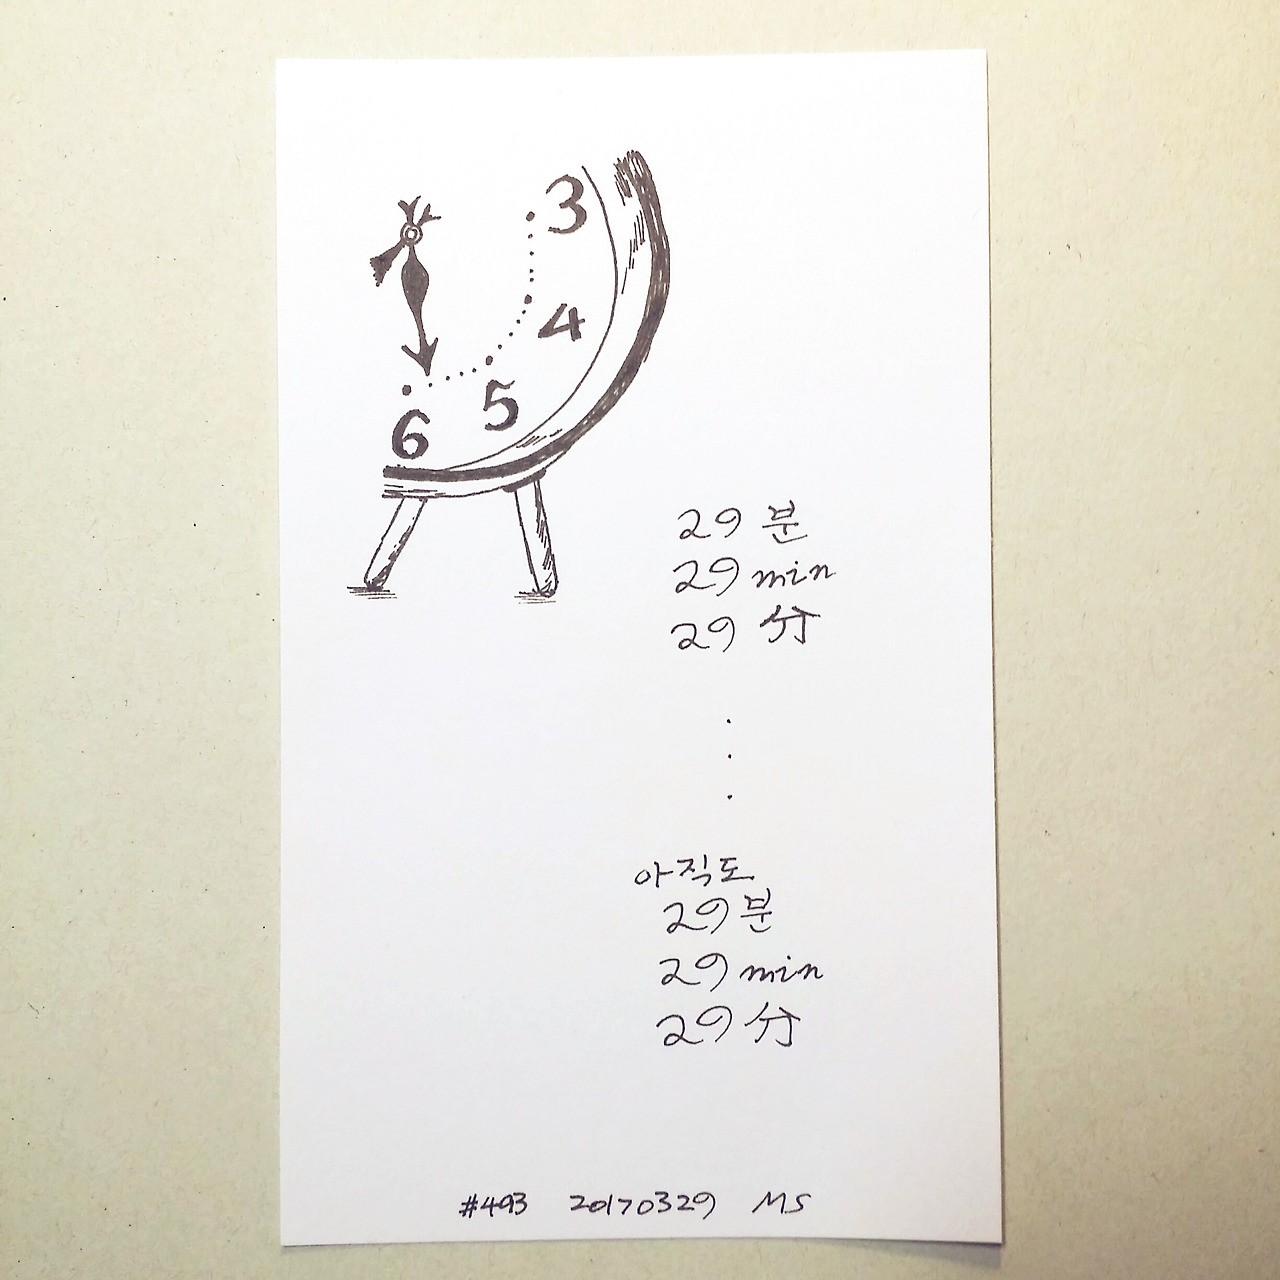 3
4
5
6
29 분
29 min
29 分
아직도
29 분
29 min
29 分
#493 20170329 MS